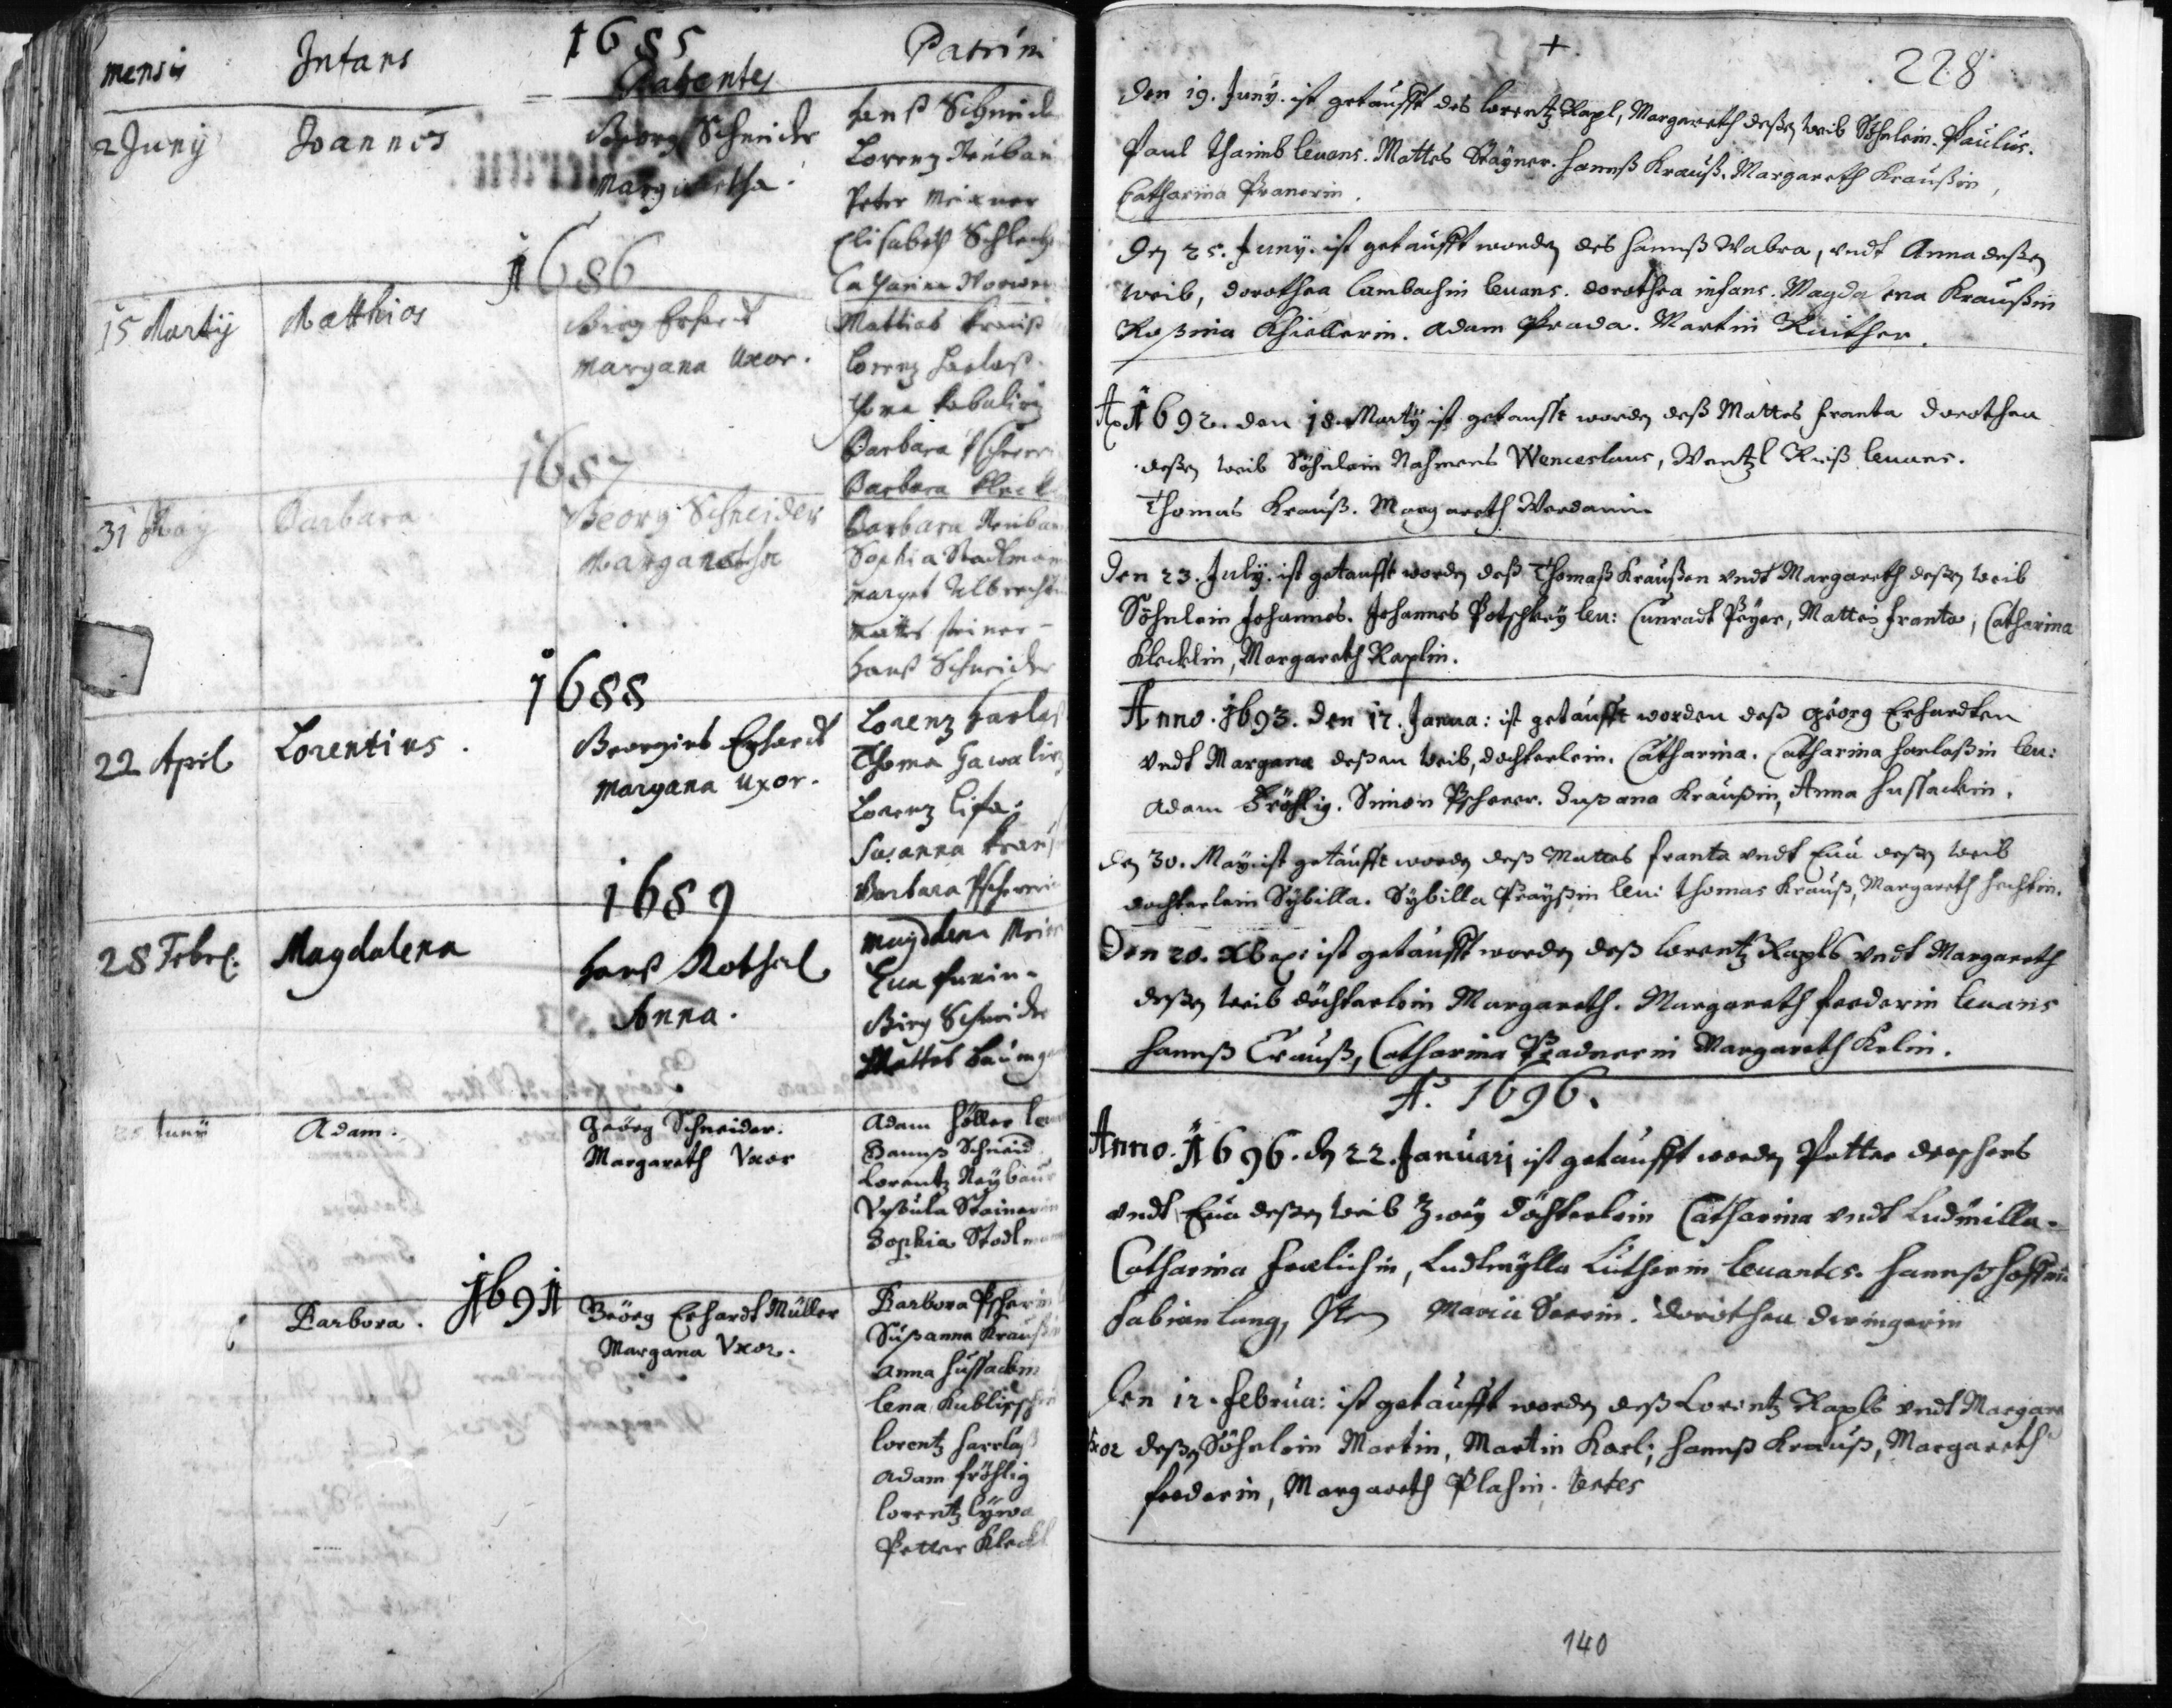 1685
mensis Infans Parentes Patrini
2 Juny Joannes Georg Schneider Hanß Schneid
Margaretha Lorenz Neubau
Peter Meixner
Elisabeth
Catharina
1686
15 Marty Matthias Girg Erhardt Mattias Krauß
Margana Uxor. Lorenz Harlaß
Barbara
Barbara Kleck
1687
31 May Barbara Georg Schneider Barbara Neubau
Margaretha Sophia Stadlman
Marget Ulbrecht
Mattes Steiner
Hanß Schneider
1688
22 April Lorentius. Georgius Erhardt Lorenz Harlas
Margana Uxor. Thoma Hawalirz
Lorenz Lifa
Susanna Krauß
Barbara Pscherer
1689
28 Febr. Magdalena Hanß Rothal Magdlena
Anna. Eva
Girg Schneider
Mattes Baumg
Juny Adam. Geörg Schneider. Adam Höller leu
Margareth Vxor Hannß Schneid
Lorentz Neybaur
Vrsula Steinerin
Sophia Stodlman
1691
Barbora. Geörg Erhardt Müller Barbora Pscherin
Margana Vxor. Sußanna Kraußin
Anna Hussackin
Lena
Lorentz Harrlaß
Adam Fröhlig
Lorentz Lywa
Petter Kleckl
228
Den 19. Juny. ist getaufft des Lorentz Kapl, Margareth deßen weib Söhnlein. Paulus.
Paul Thaimb leuans. Mattes Stayner. Hannß Krauß. Margareth Kraußin,
Catharina Pranerin.
Den 25. Juny. ist getaufft worden des Hannß Wabra, vndt Anna deßen
weib, Dorothea Lambachin leuans. Dorothea infans. Magdalena Kraußin
Roßina Khiellerin. Adam Prada. Martin Raither.
Ao 1692. den 18. Marty ist getaufft worden deß Mattes Franta Dorothea
deßen weib Söhnlein Nahmens Wenceslaus, Wentzl Ruß leuans.
Thomas Krauß. Margareth Wordanin
Den 23. July. ist getaufft worden deß Thomaß Kraußen vndt Margareth deßen weib
Söhnlein Johannes. Johannes Potschkey leu: Cunradt Peyer, Mattes Franta, Catharina
Klecklin, Margareth Kaplin.
Anno. 1693. den 17. Janua: ist getaufft worden deß Georg Erhardten
vndt Margana deßen weib, dochterlein. Catharina. Catharina Harlaßin leu:
Adam Fröhlig. Simon Pscherer. Sußana Kraußin, Anna Hussackin.
Den 30. May ist getaufft worden deß Mattes Franta vndt Eua deßen weib
dochterlein Sybilla. Sybilla Prayßin leu: Thomas Krauß, Margareth Hechtin.
Den 20. Xber ist getaufft worden deß Lorentz Kapls vndt Margareth
deßen weib döchterlein Margareth. Margareth Federin leuans
Hannß Crauß, Catharina Pradnerin Margareth Kelin.
A. 1696.
Anno. 1696. den 22. Januarj ist getaufft worden Petter Dreschers
vndt Eua deßen weib Zwey döchterlein Catharina vndt Ludmilla.
Catharina Frelichin, Ludmylla Lutherin leuantes. Hannß
Fabian Lang, Maria Seerin. Dorothea Deringerin
Den 12. Februa: ist getaufft worden deß Lorentz Kapls vndt Margare
Vxor deßen Söhnlein Martin, Martin Karl; Hannß Krauß, Margareth
Federin, Margareth Plahin. testes
140